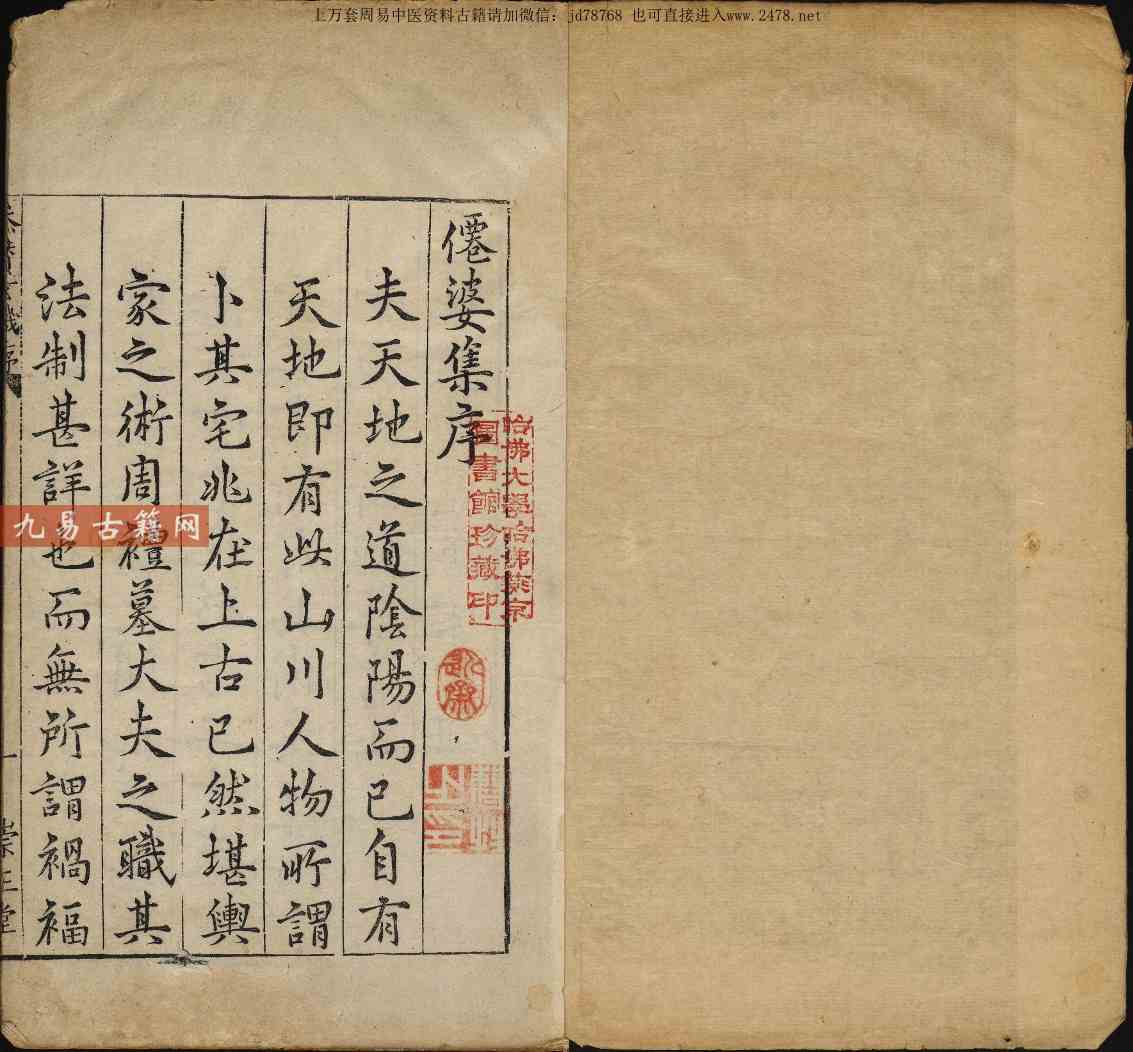 上万套周易中医资料古籍请加微信：jd78768 也可直接进入www.2478.net
僊婆集序
夫天地之道陰陽而已自有
天地即有此山川人物所謂
卜其宅兆在上古已然堪輿
家之術周禮墓大夫之職其
法制甚詳也而無所謂禍福
序
一
崇正堂
哈佛大學哈佛燕京
圖書館珍藏印
九易古籍网